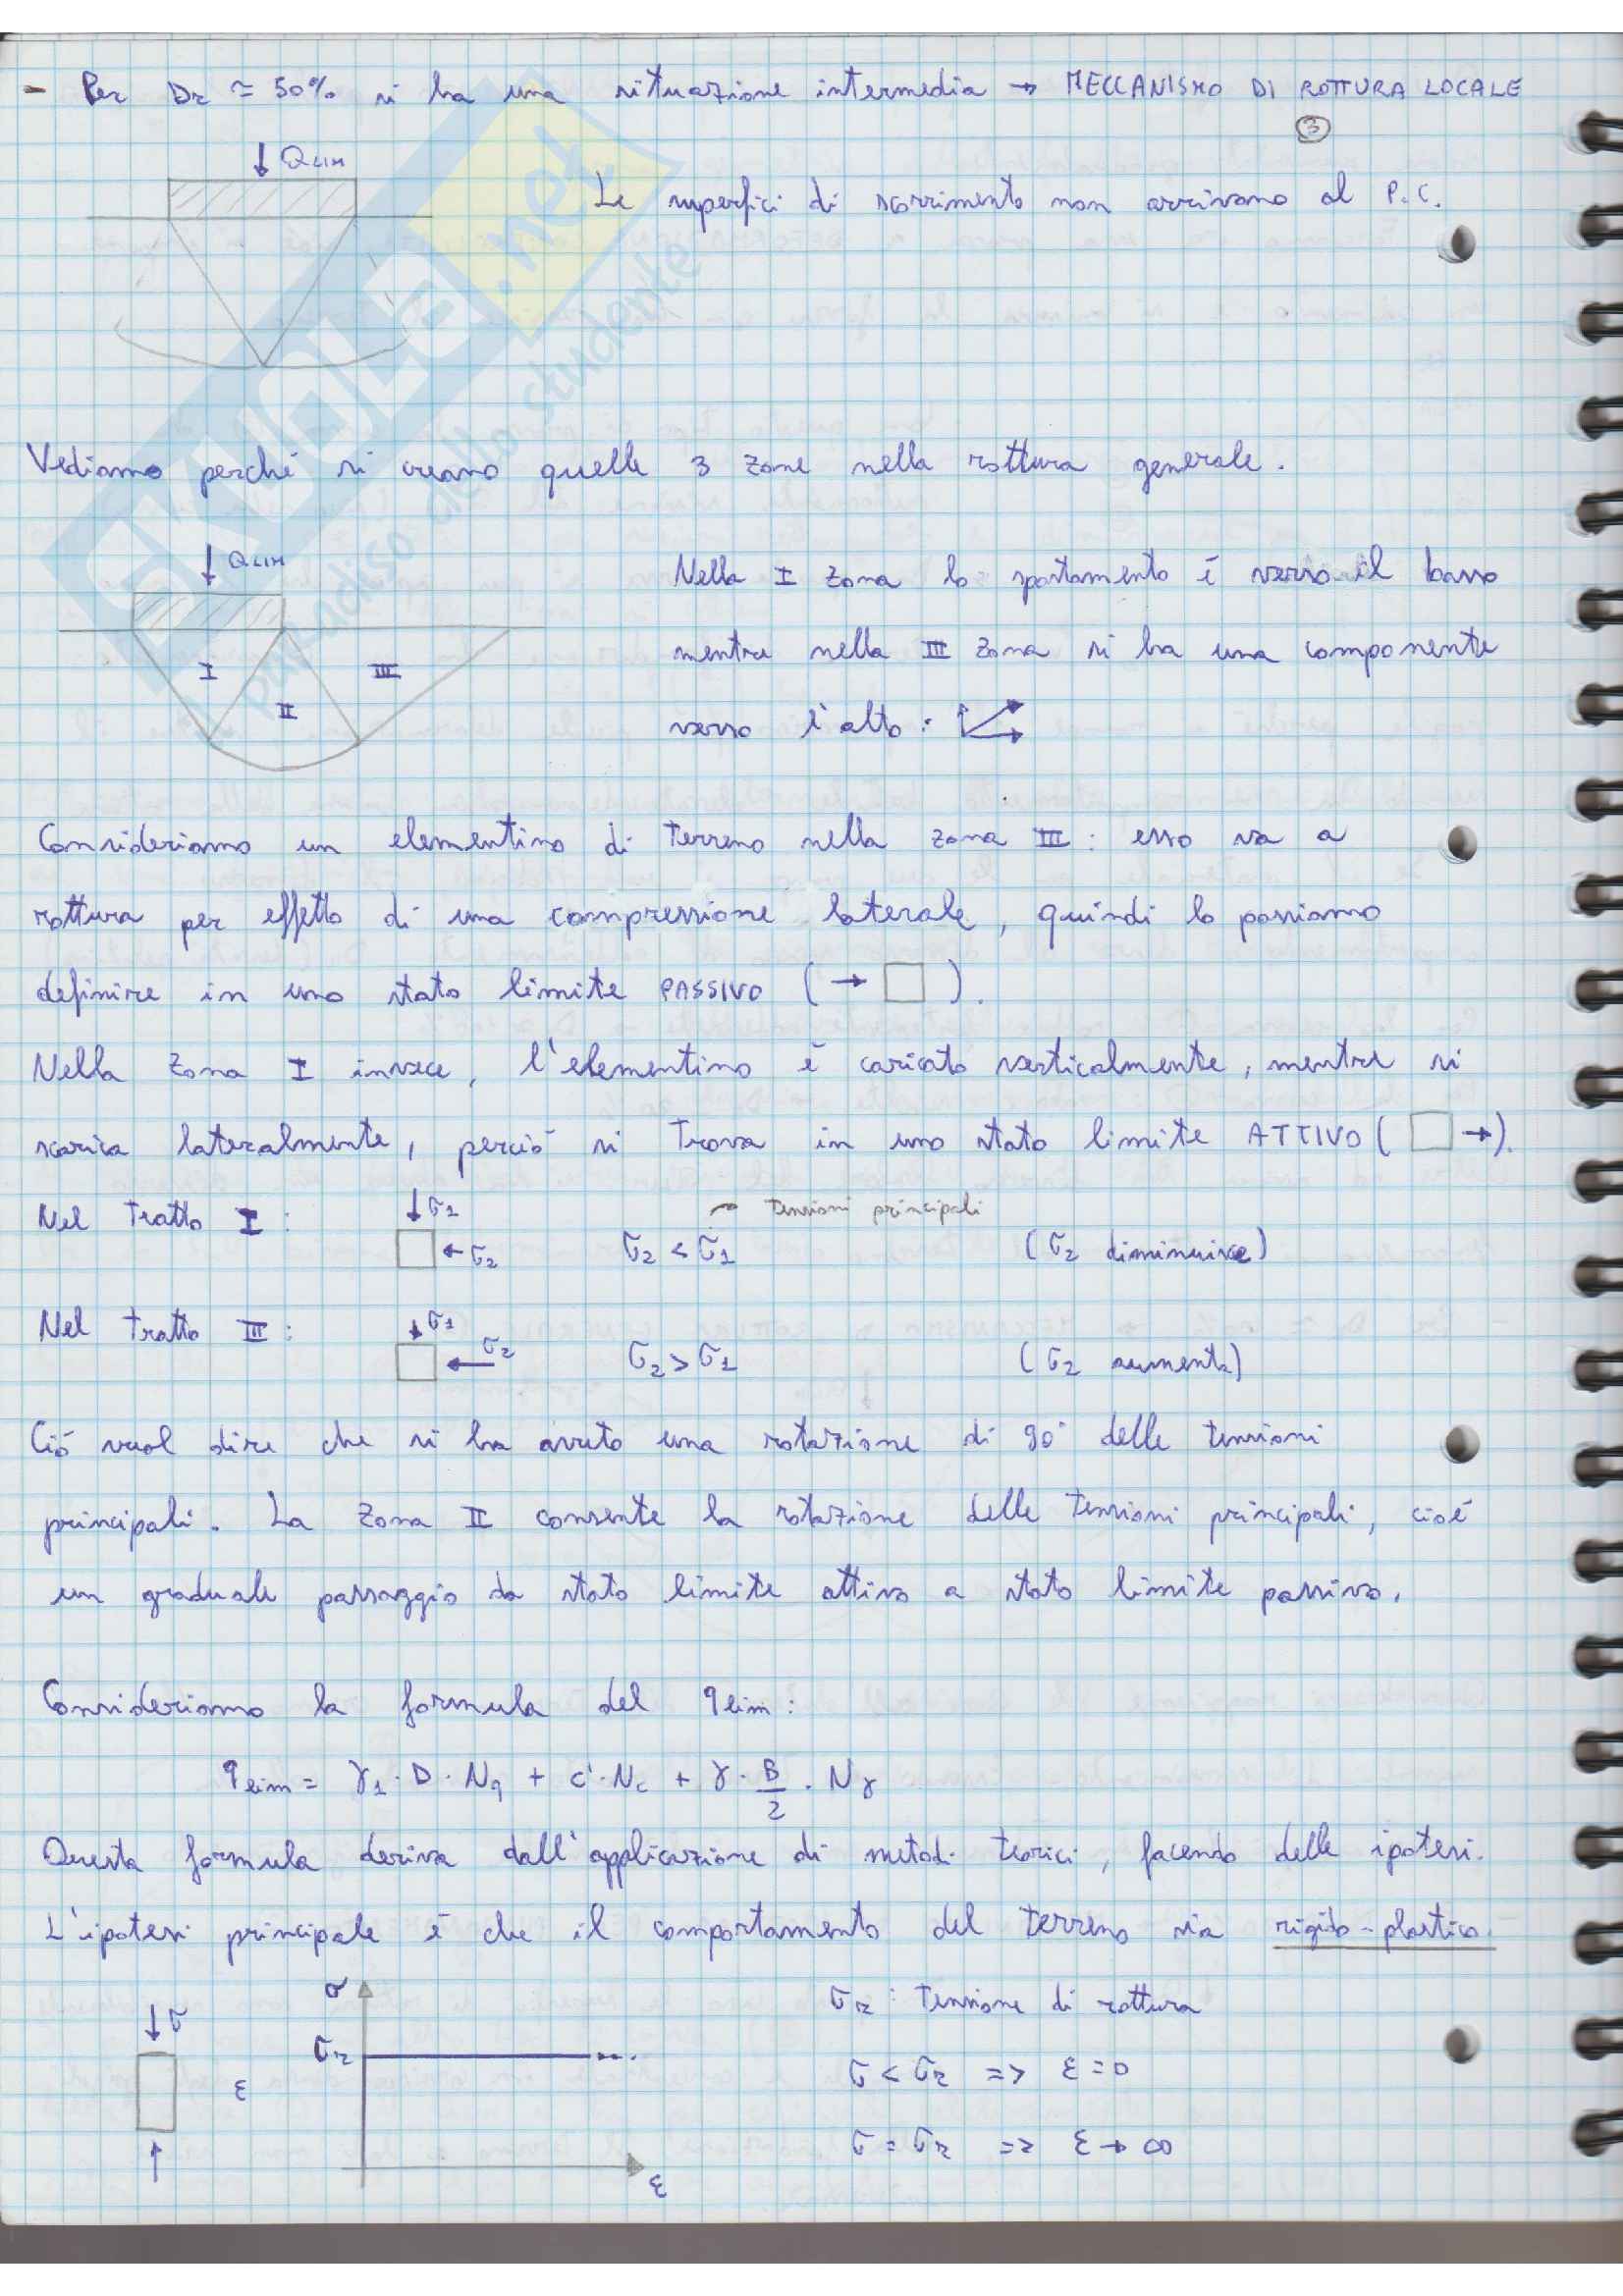 - Per Dr ≃ 50% si ha una situazione intermedia → MECCANISMO DI ROTTURA LOCALE
3
↓ QLIM
Le superfici di scorrimento non arrivano al P.C.
Vediamo perché si creano quelle 3 zone nella rottura generale.
↓ QLIM
I
II
III
Nella I zona lo spostamento è verso il basso
mentre nella III zona si ha una componente
verso l'alto:
Consideriamo un elementino di terreno nella zona III: esso va a
rottura per effetto di una compressione laterale, quindi lo possiamo
definire in uno stato limite PASSIVO (→ □).
Nella zona I invece, l'elementino è caricato verticalmente, mentre si
scarica lateralmente, perciò si trova in uno stato limite ATTIVO (□ →).
Nel tratto I: ↓σ1 ← σ2 σ2 < σ1 → tensioni principali (σ2 diminuisce)
Nel tratto III: ↓σ1 ← σ2 σ2 > σ1 (σ2 aumenta)
Ciò vuol dire che si ha avuto una rotazione di 90° delle tensioni
principali. La zona II consente la rotazione delle tensioni principali, cioè
un graduale passaggio da stato limite attivo a stato limite passivo.
Consideriamo la formula del qlim:
qlim = γ1 · D · Nq + c' · Nc + γ · B/2 · Nγ
Questa formula deriva dall'applicazione di metodi teorici, facendo delle ipotesi.
L'ipotesi principale è che il comportamento del terreno sia rigido-plastico.
↓ σ
ε
σ
σr
ε
σr: tensione di rottura
σ < σr => ε = 0
σ = σr => ε → ∞
SKUOLA.net
paradiso dello studente